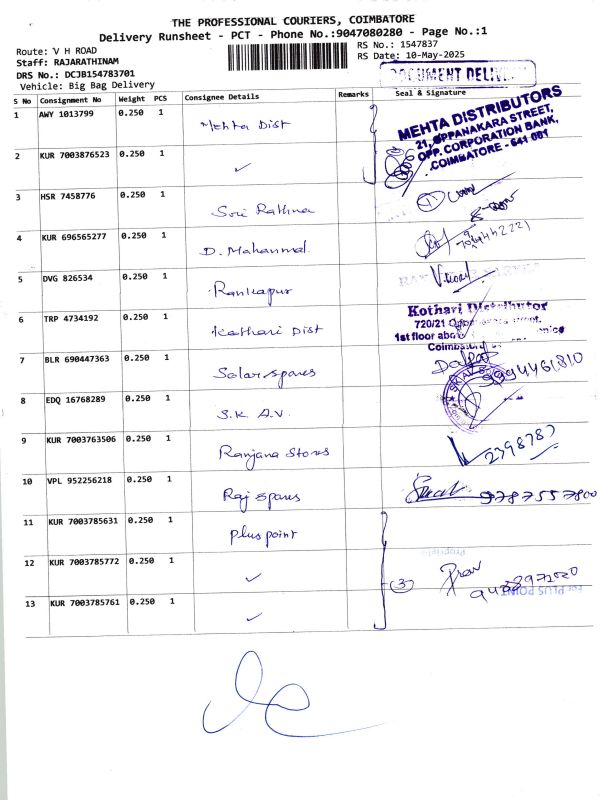 THE PROFESSIONAL COURIERS, COIMBATORE
Delivery Runsheet - PCT - Phone No.:9047080280 - Page No.:1
Route: V H ROAD
RS No.: 1547837
Staff: RAJARATHINAM
RS Date: 10-May-2025
DRS No.: DCJB154783701
Vehicle: Big Bag Delivery
DOCUMENT DELIV
S No Consignment No Weight PCS Consignee Details Remarks Seal & Signature
1 AWY 1013799 0.250 1 Mehta Dist
MEHTA DISTRIBUTORS
21, OPPANAKARA STREET,
OPP. CORPORATION BANK,
COIMBATORE - 641 001
2 KUR 7003876523 0.250 1 ✓
3 HSR 7458776 0.250 1 Sri Rathna
4 KUR 696565277 0.250 1 D. Mahanmal
5 DVG 826534 0.250 1 Rankapur
6 TRP 4734192 0.250 1 Kothari Dist
Kothari Distributor
720/21
1st floor
7 BLR 690447363 0.250 1 Solar spares
9994461810
8 EDQ 16768289 0.250 1 S.K. A.V.
9 KUR 7003763506 0.250 1 Ranjana Stores
2398787
10 VPL 952256218 0.250 1 Raj spares
9787557800
11 KUR 7003785631 0.250 1 Plus point
12 KUR 7003785772 0.250 1 ✓
3
For PLUS POINT
13 KUR 7003785761 0.250 1 ✓